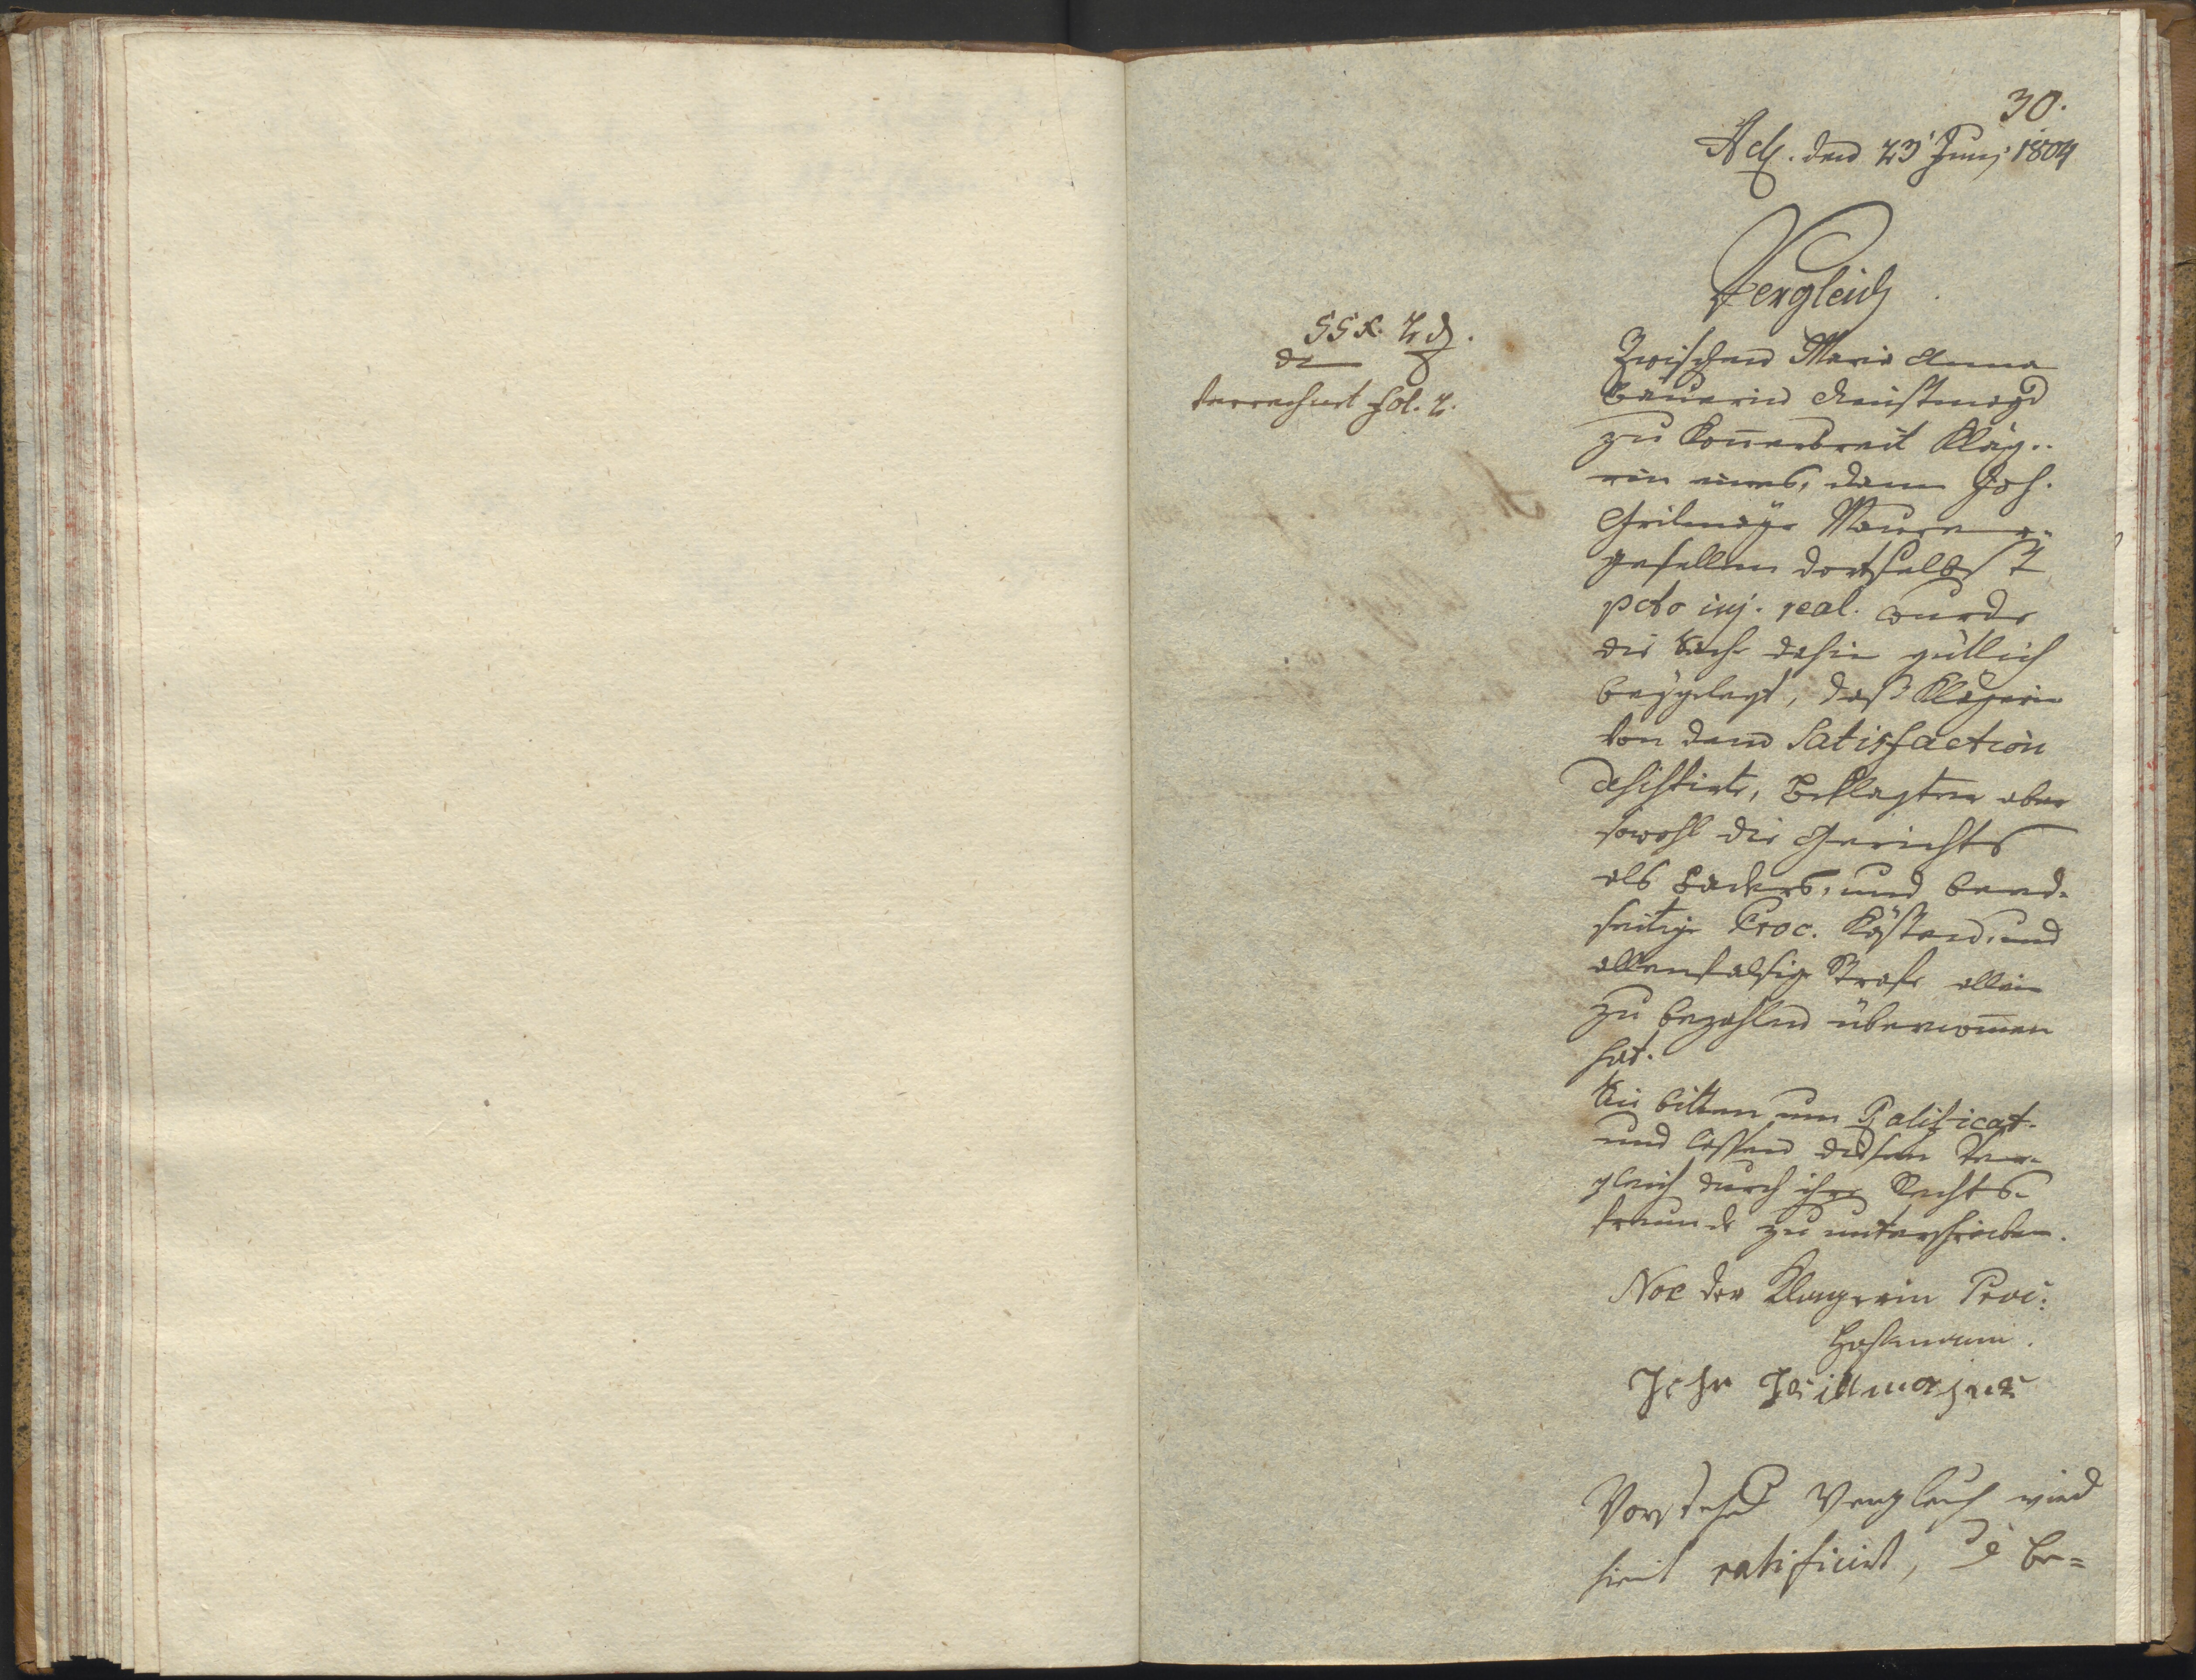 30.
Act. den 23' Junj 1804
Vergleich
55 x. 2 d.
verrechnet fol. 2.
Zwischen Maria Anna
Bäuerin Dienstmagd
zu Kläg..
rin eines, dann Joh.
Grilmayr Maurer=
gesellen dortselbst
pcto inj. real. wurde
die Sache dahin gütlich
beygelegt, daß Klägerin
von dem Satisfaction
desistirte, Beklagter aber
sowohl die Gerichts
als Baders, und beed=
seitige Proc. Kösten, und
allenfalsige Strafe allein
zu bezahlen übernom̄en
hat.
Sie bitten um Ratificat.
und lassen diesen Ver=
gleich durch ihre Rechts=
freunde zu unterschreiben.
Noe der Klagerin Proc:
Johan Grillmajer
Vorstehend Vergleich wird
hiemit ratificirt, d be=